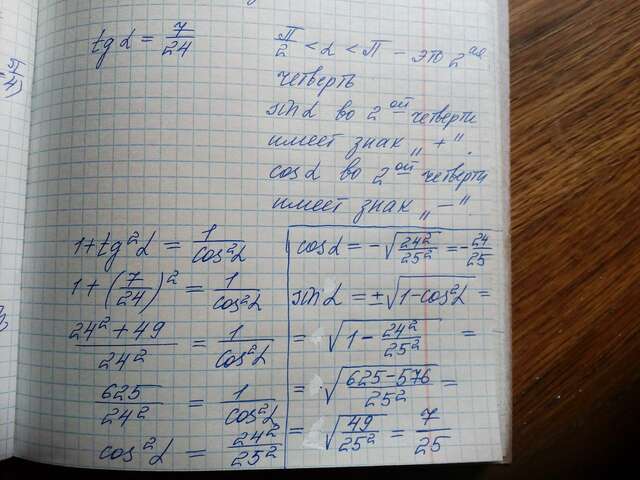 tg α = 7/24
π/2 < α < π – это 2ая
четверть
sin α во 2ой четверти
имеет знак „+“.
cos α во 2ой четверти
имеет знак „–“.
1+tg²α = 1/cos²α
1+(7/24)² = 1/cos²α
(24²+49)/24² = 1/cos²α
625/24² = 1/cos²α
cos²α = 24²/25²
cos α = -√(24²/25²) = -24/25
sin α = ±√(1-cos²α) =
= √(1-24²/25²) =
= √((625-576)/25²) =
= √(49/25²) = 7/25